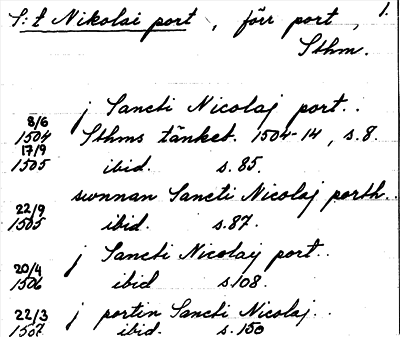 S:t Nikolai port, förr port, 1.
Sthm.
j Sancti Nicolaj port..
8/6
1504 Sthms tänkeb. 1504-14, s.8.
17/9
1505 ibid. s.85.
sunnan Sancti Nicolaj porth..
22/9
1505 ibid. s.87.
j Sancti Nicolaij port..
20/4
1506 ibid s.108.
22/3 j portin Sancti Nicolaj..
1507 ibid. s.150